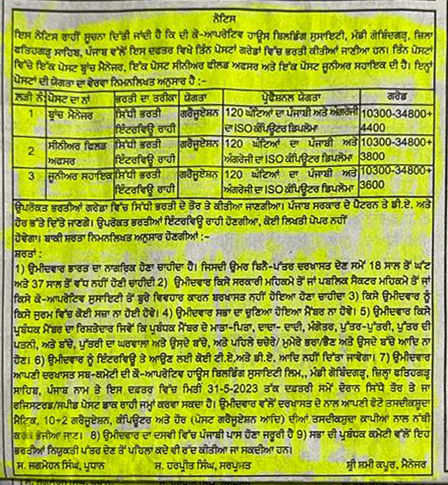 ਨੋਟਿਸ
ਇਸ ਨੋਟਿਸ ਰਾਹੀਂ ਸੂਚਨਾ ਦਿੱਤੀ ਜਾਂਦੀ ਹੈ ਕਿ ਦੀ ਕੋ-ਆਪਰੇਟਿਵ ਹਾਊਸ ਬਿਲਡਿੰਗ ਸੁਸਾਇਟੀ, ਮੰਡੀ ਗੋਬਿੰਦਗੜ੍ਹ, ਜ਼ਿਲਾ
ਫਤਿਹਗੜ੍ਹ ਸਾਹਿਬ, ਪੰਜਾਬ ਵੱਲੋਂ ਇਸ ਦਫਤਰ ਵਿਖੇ ਤਿੰਨ ਪੋਸਟਾਂ ਗਰੇਡਾਂ ਵਿੱਚ ਭਰਤੀ ਕੀਤੀਆਂ ਜਾਣੀਆਂ ਹਨ। ਤਿੰਨ ਪੋਸਟਾਂ
ਵਿੱਚੋਂ ਇੱਕ ਪੋਸਟ ਬ੍ਰਾਂਚ ਮੈਨੇਜਰ, ਇੱਕ ਪੋਸਟ ਸੀਨੀਅਰ ਫੀਲਡ ਅਫਸਰ ਅਤੇ ਇੱਕ ਪੋਸਟ ਜੂਨੀਅਰ ਸਹਾਇਕ ਦੀ ਹੈ। ਇਨ੍ਹਾਂ
ਪੋਸਟਾਂ ਦੀ ਯੋਗਤਾ ਦਾ ਵੇਰਵਾ ਨਿਮਨਲਿਖਤ ਅਨੁਸਾਰ ਹੈ :-
ਲੜੀ ਨੰ. ਪੋਸਟ ਦਾ ਨਾਂ ਭਰਤੀ ਦਾ ਤਰੀਕਾ ਯੋਗਤਾ ਪ੍ਰੋਫੈਸ਼ਨਲ ਯੋਗਤਾ ਗਰੇਡ
1 ਬ੍ਰਾਂਚ ਮੈਨੇਜਰ ਸਿੱਧੀ ਭਰਤੀ ਗਰੈਜੂਏਸ਼ਨ 120 ਘੰਟਿਆਂ ਦਾ ਪੰਜਾਬੀ ਅਤੇ ਅੰਗਰੇਜ਼ੀ 10300-34800+
ਇੰਟਰਵਿਊ ਰਾਹੀਂ ਦਾ ISO ਕੰਪਿਊਟਰ ਡਿਪਲੋਮਾ 4400
2 ਸੀਨੀਅਰ ਫਿਲਡ ਸਿੱਧੀ ਭਰਤੀ ਗਰੈਜੂਏਸ਼ਨ 120 ਘੰਟਿਆਂ ਦਾ ਪੰਜਾਬੀ ਅਤੇ 10300-34800+
ਅਫਸਰ ਇੰਟਰਵਿਊ ਰਾਹੀਂ ਅੰਗਰੇਜ਼ੀ ਦਾ ISO ਕੰਪਿਊਟਰ ਡਿਪਲੋਮਾ 3800
3 ਜੂਨੀਅਰ ਸਹਾਇਕ ਸਿੱਧੀ ਭਰਤੀ ਗਰੈਜੂਏਸ਼ਨ 120 ਘੰਟਿਆਂ ਦਾ ਪੰਜਾਬੀ ਅਤੇ 10300-34800+
ਇੰਟਰਵਿਊ ਰਾਹੀਂ ਅੰਗਰੇਜ਼ੀ ਦਾ ISO ਕੰਪਿਊਟਰ ਡਿਪਲੋਮਾ 3600
ਉਪਰੋਕਤ ਭਰਤੀਆਂ ਗਰੇਡਾਂ ਵਿੱਚ ਸਿੱਧੀ ਭਰਤੀ ਦੇ ਤੌਰ ਤੇ ਕੀਤੀਆਂ ਜਾਣਗੀਆਂ। ਪੰਜਾਬ ਸਰਕਾਰ ਦੇ ਪੈਟਰਨ ਤੇ ਡੀ.ਏ. ਅਤੇ
ਹੋਰ ਭੱਤੇ ਦਿੱਤੇ ਜਾਣਗੇ। ਉਪਰੋਕਤ ਭਰਤੀਆਂ ਇੰਟਰਵਿਊ ਰਾਹੀਂ ਹੋਣਗੀਆਂ, ਕੋਈ ਲਿਖਤੀ ਪੇਪਰ ਨਹੀਂ
ਹੋਵੇਗਾ। ਬਾਕੀ ਸ਼ਰਤਾਂ ਨਿਮਨਲਿਖਤ ਅਨੁਸਾਰ ਹੋਣਗੀਆਂ :-
ਸ਼ਰਤਾਂ :
1) ਉਮੀਦਵਾਰ ਭਾਰਤ ਦਾ ਨਾਗਰਿਕ ਹੋਣਾ ਚਾਹੀਦਾ ਹੈ। ਜਿਸਦੀ ਉਮਰ ਬਿਨੈ-ਪੱਤਰ ਦਰਖਾਸਤ ਦੇਣ ਸਮੇਂ 18 ਸਾਲ ਤੋਂ ਘੱਟ
ਅਤੇ 37 ਸਾਲ ਤੋਂ ਵੱਧ ਨਹੀਂ ਹੋਣੀ ਚਾਹੀਦੀ 2) ਉਮੀਦਵਾਰ ਕਿਸੇ ਸਰਕਾਰੀ ਮਹਿਕਮੇ ਤੋਂ ਜਾਂ ਪਬਲਿਕ ਸੈਕਟਰ ਮਹਿਕਮੇ ਤੋਂ ਜਾਂ
ਕਿਸੇ ਕੋ-ਆਪਰੇਟਿਵ ਸੁਸਾਇਟੀ ਤੋਂ ਬੁਰੇ ਵਿਵਹਾਰ ਕਾਰਨ ਬਰਖਾਸਤ ਨਹੀਂ ਹੋਇਆ ਹੋਣਾ ਚਾਹੀਦਾ 3) ਕਿਸੇ ਉਮੀਦਵਾਰ ਨੂੰ
ਕਿਸੇ ਜੁਰਮ ਵਿੱਚ ਕੋਈ ਸਜ਼ਾ ਨਾ ਹੋਈ ਹੋਵੇ। 4) ਉਮੀਦਵਾਰ ਸਭਾ ਦਾ ਚੁਣਿਆ ਹੋਇਆ ਮੈਂਬਰ ਨਾ ਹੋਵੇ। 5) ਉਮੀਦਵਾਰ ਕਿਸੇ
ਪ੍ਰਬੰਧਕ ਮੈਂਬਰ ਦਾ ਰਿਸ਼ਤੇਦਾਰ ਜਿਵੇਂ ਕਿ ਪ੍ਰਬੰਧਕ ਮੈਂਬਰ ਦੇ ਮਾਤਾ-ਪਿਤਾ, ਦਾਦਾ- ਦਾਦੀ, ਮੰਗੇਤਰ, ਪੁੱਤਰ-ਪੁੱਤਰੀ, ਪੁੱਤਰ ਦੀ
ਪਤਨੀ, ਅਤੇ ਬੱਚੇ, ਪੁੱਤਰੀ ਦਾ ਘਰਵਾਲਾ ਅਤੇ ਉਸਦੇ ਬੱਚੇ, ਅਤੇ ਪਹਿਲੇ ਚਚੇਰੇ/ ਮੁਮੇਰੇ ਭਰਾ/ਭੈਣ ਅਤੇ ਉਸਦੇ ਬੱਚੇ ਆਦਿ ਨਾ
ਹੋਣ। 6) ਉਮੀਦਵਾਰ ਨੂੰ ਇੰਟਰਵਿਊ ਤੇ ਆਉਣ ਲਈ ਕੋਈ ਟੀ.ਏ.ਅਤੇ ਡੀ.ਏ ਆਦਿ ਨਹੀਂ ਦਿੱਤਾ ਜਾਵੇਗਾ। 7) ਉਮੀਦਵਾਰ
ਆਪਣੀ ਦਰਖਾਸਤ ਸਬ-ਕਮੇਟੀ ਦੀ ਕੋ-ਆਪਰੇਟਿਵ ਹਾਊਸ ਬਿਲਡਿੰਗ ਸੁਸਾਇਟੀ ਲਿਮ:, ਮੰਡੀ ਗੋਬਿੰਦਗੜ੍ਹ, ਜ਼ਿਲ੍ਹਾ ਫਤਿਹਗੜ੍ਹ
ਸਾਹਿਬ, ਪੰਜਾਬ ਨਾਮ ਤੇ ਇਸ ਦਫਤਰ ਵਿਚ ਮਿਤੀ 31-5-2023 ਤੱਕ ਦਫ਼ਤਰੀ ਸਮੇਂ ਦੌਰਾਨ ਸਿੱਧੇ ਤੌਰ ਤੇ ਜਾਂ
ਰਜਿਸਟਰਡ/ਸਪੀਡ ਪੋਸਟ ਡਾਕ ਰਾਹੀਂ ਜਮ੍ਹਾਂ ਕਰਵਾ ਸਕਦਾ ਹੈ। ਉਮੀਦਵਾਰ ਵੱਲੋਂ ਦਰਖਾਸਤ ਦੇ ਨਾਲ ਆਪਣੀ ਫੋਟੋ ਤਸਦੀਕਸ਼ੁਦਾ
ਮੈਟ੍ਰਿਕ, 10+2 ਗਰੈਜੂਏਸ਼ਨ, ਕੰਪਿਊਟਰ ਅਤੇ ਹੋਰ (ਪੋਸਟ ਗਰੈਜੂਏਸ਼ਨ ਆਦਿ) ਦੀਆਂ ਤਸਦੀਕਸ਼ੁਦਾ ਕਾਪੀਆਂ ਨਾਲ ਨੱਥੀ
ਕਰਕੇ ਭੇਜੀਆਂ ਜਾਣ। 8) ਉਮੀਦਵਾਰ ਦਾ ਦਸਵੀਂ ਵਿੱਚ ਪੰਜਾਬੀ ਪਾਸ ਹੋਣਾ ਜ਼ਰੂਰੀ ਹੈ 9) ਸਭਾ ਦੀ ਪ੍ਰਬੰਧਕ ਕਮੇਟੀ ਵੱਲੋਂ ਇਹ
ਭਰਤੀਆਂ ਨਿਯੁਕਤੀ ਪੱਤਰ ਦੇਣ ਤੋਂ ਪਹਿਲਾਂ ਕਦੇ ਵੀ ਰੱਦ ਕੀਤੀਆ ਜਾ ਸਕਦੀਆਂ ਹਨ।
ਸ. ਜਗਮੋਹਨ ਸਿੰਘ, ਪ੍ਰਧਾਨ ਸ. ਹਰਪ੍ਰੀਤ ਸਿੰਘ, ਸਰਪ੍ਰਸਤ ਸ਼੍ਰੀ ਸ਼ਮੀ ਕਪੂਰ, ਮੈਨੇਜਰ